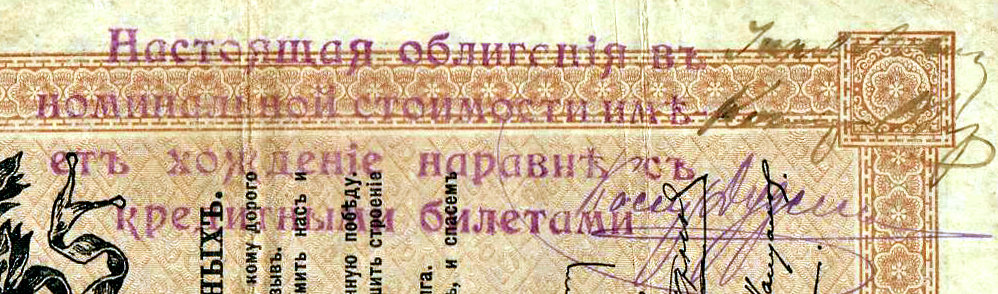 Настоящая облигенія въ
номинальной стоимости имѣ-
етъ хожденіе наравнѣ съ
кредитными билетами
НЫХЪ.
кому дорого
ывъ.
мить насъ и
нную побѣду.
шить строеніе
га.
ь, и спасемъ